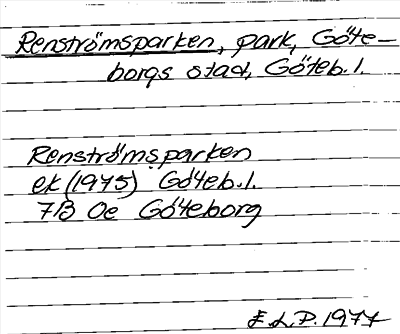 Renströmsparken, park, Göte-
borgs stad, Göteb. l.
Renströmsparken
ek (1975) Göteb. l.
7B 0e Göteborg
E.L.P. 1977